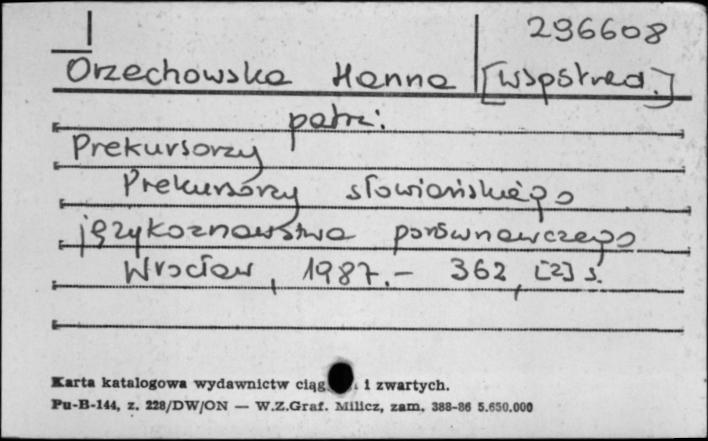 296608
Orzechowska Hanna [Współred.]
patrz:
Prekursorzy
Prekursorzy słowiańskiego
językoznawstwa porównawczego
Wrocław, 1987.- 362, [2] s.
Karta katalogowa wydawnictw ciąg. i zwartych.
Pu-B-144, z. 228/DW/ON — W.Z.Graf. Milicz, zam. 388-86 5.650.000